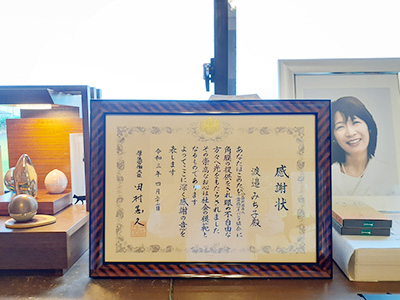 感謝状
渡邉 みち子殿
あなたはこのたび
角膜の提供をされ眼の不自由な
方々へ光をもたらされました
その崇高なお心は社会の模範と
なるものであります
よってここに深く感謝の意を
表します
令和三年四月
厚生労働大臣 田村憲久